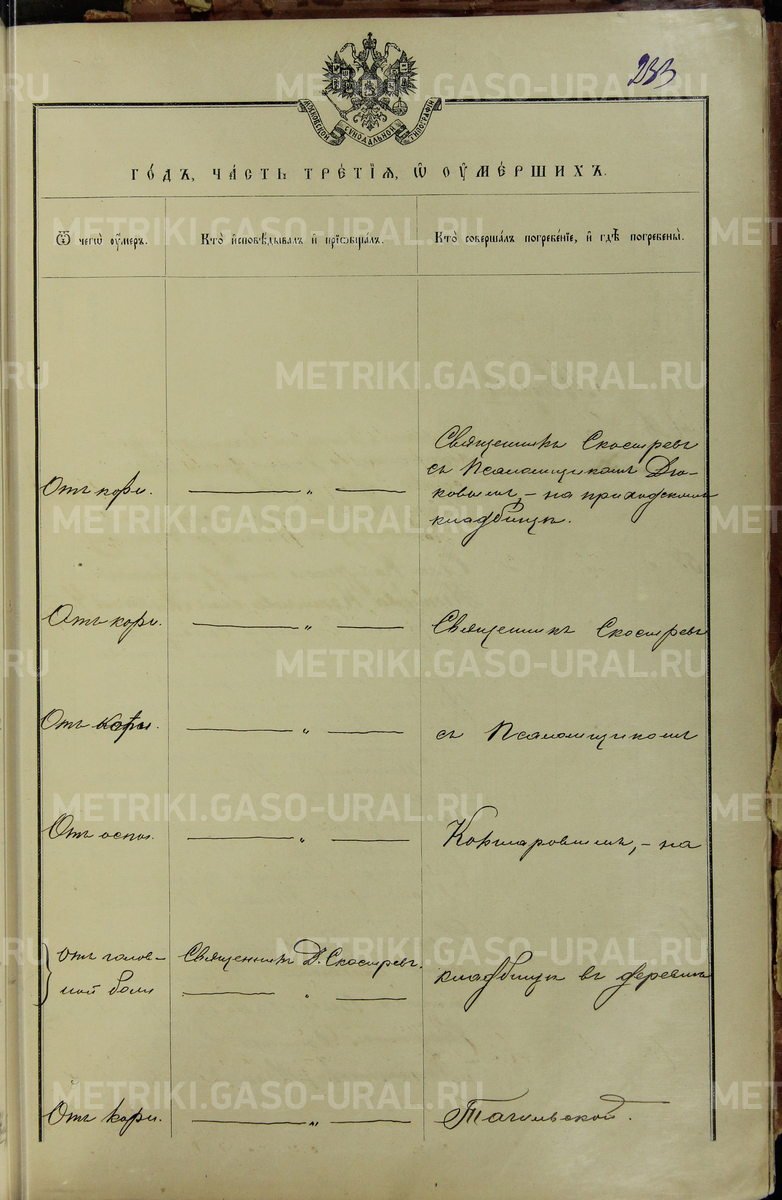 233
МОСКОВСКОЙ СѴНОДАЛЬНОЙ ТИПОГРАФІИ
ГО́ДЪ, ЧА́СТЬ ТРЕ́ТІѦ, Ѿ ОУМЕ́РШИХЪ.
Ѿ чегѡ̀ оу҆́меръ.
Кто̀ и҆сповѣ́дывалъ и҆ приѻбща́лъ.
Кто̀ соверша́лъ погребе́нїе, и҆ гдѣ̀ погребены̀.
Священникъ Скосыревъ
съ Псаломщикомъ Дю-
Отъ кори. — „ —
ковымъ, - на приходскомъ
кладбищѣ.
Отъ кори. — „ — Священникъ Скосыревъ
Отъ кори. — „ — съ Псаломщикомъ
Отъ оспы. — „ — на
отъ голов- Священникъ Д. Скосыревъ. кладбищѣ въ деревнѣ
ной боли — „ —
Отъ кори. — „ — Тагильской.
METRIKI.GASO-URAL.RU